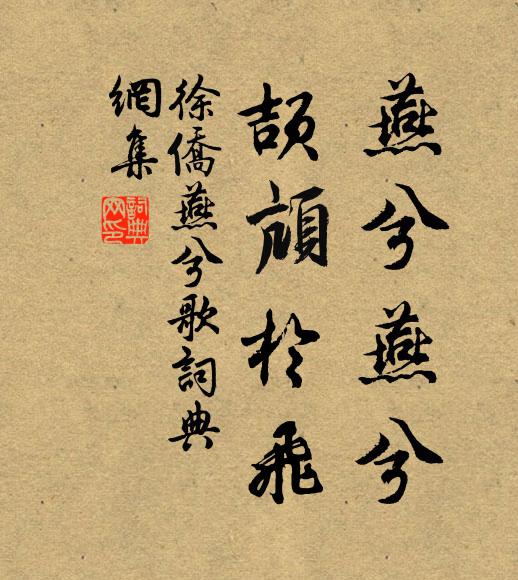 燕兮燕兮
頡頏於飛
徐僑燕兮歌詞典
網集
詞典
网印